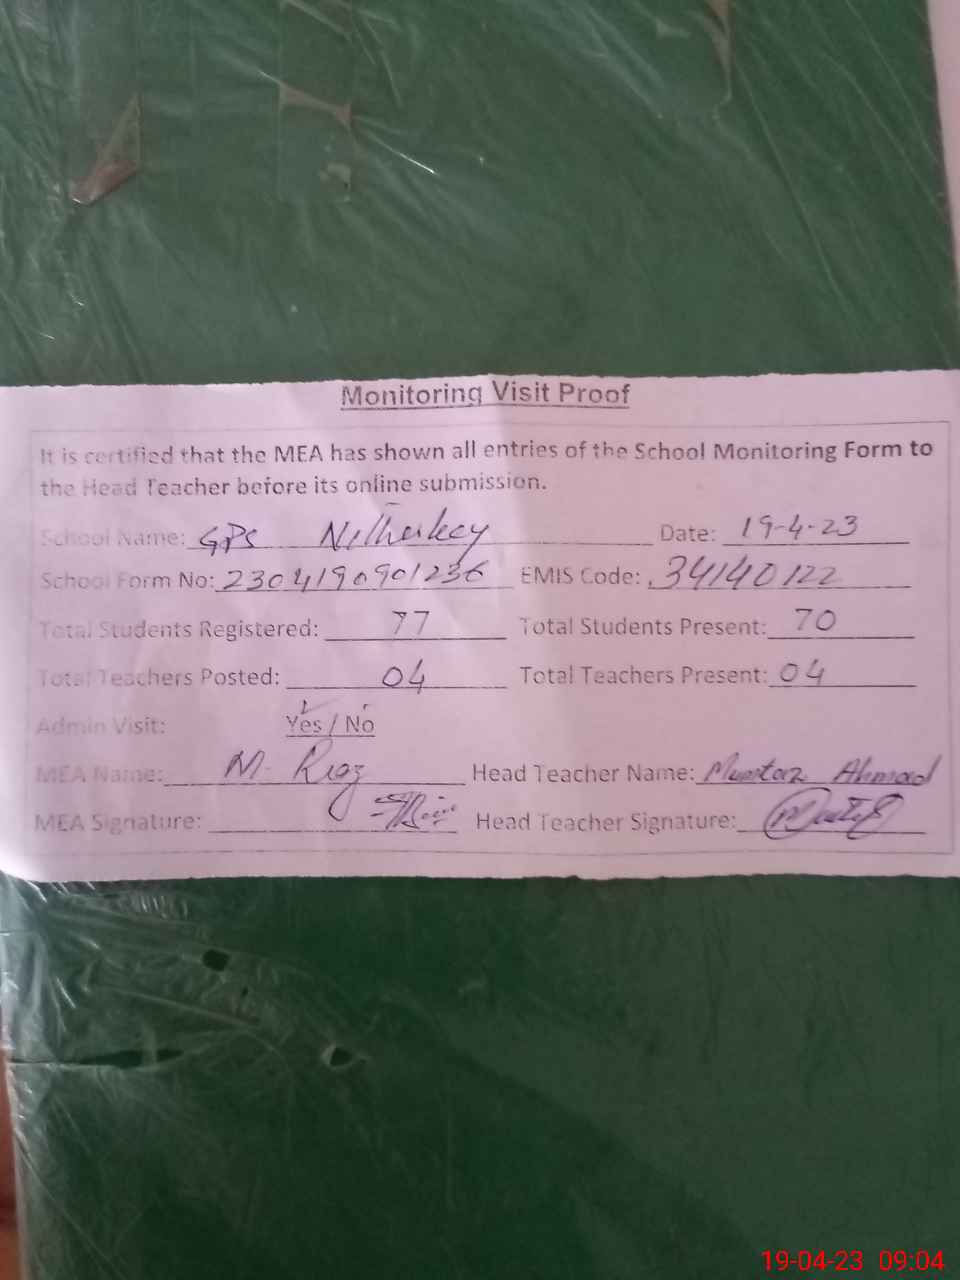 Monitoring Visit Proof
It is certified that the MEA has shown all entries of the School Monitoring Form to
the Head Teacher before its online submission.
School Name: GPS Date: 19-4-23
School Form No: 2304190901236 EMIS Code: 34140122
Total Students Registered: 77 Total Students Present: 70
Total Teachers Posted: 04 Total Teachers Present: 04
Admin Visit: Yes / No
MEA Name: M. Riaz Head Teacher Name: Mumtaz Ahmad
MEA Signature: Head Teacher Signature:
19-04-23 09:04